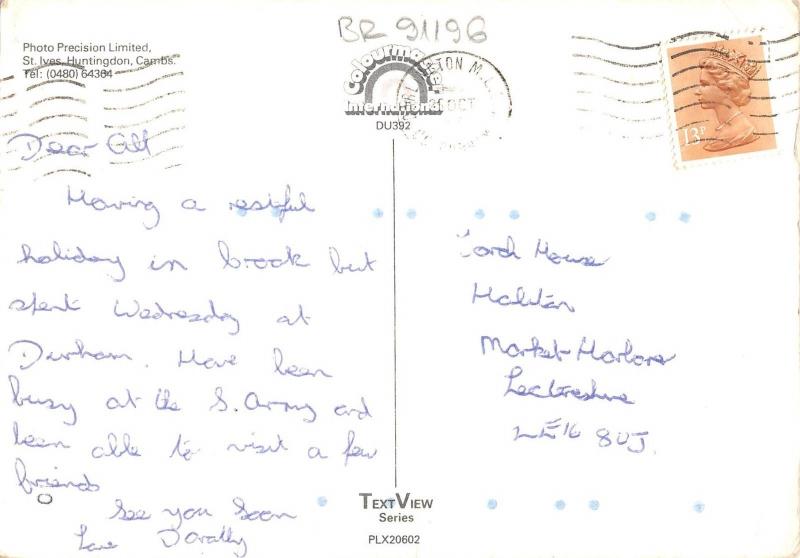 BR 91196
Photo Precision Limited,
St. Ives, Huntingdon, Cambs.
Tel: (0480) 64364
Colourmaster
International
DU392
OCT
13P
Dear All
Having a restful
holiday in brook but
spent Wednesday at
Durham. Have been
busy at the S. Army and
been able to visit a few
friends
See you soon
Love Dorothy
House
Market-Harboro
LE16 8UJ.
TEXTVIEW
Series
PLX20602